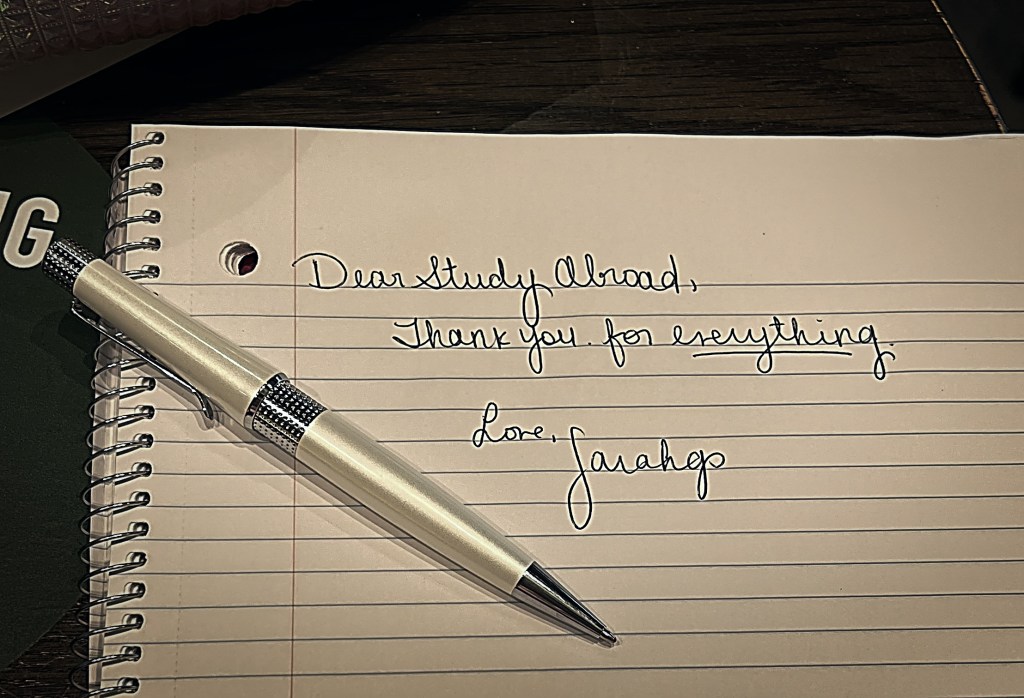 Dear Study Abroad,
Thank you for everything.
Love,